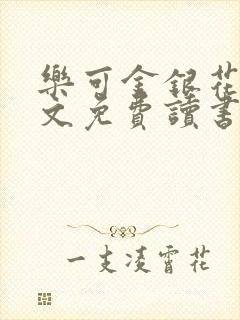 樂可金銀花
文免費讀書
一支凌霄花